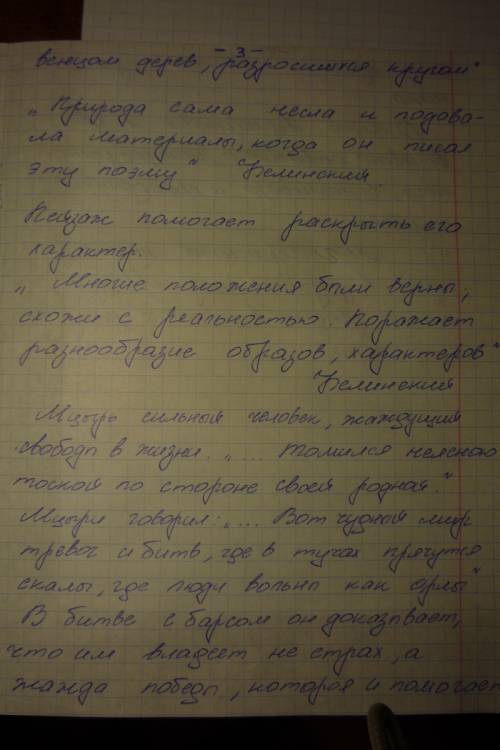 - 3 -
венцом дерев, разросшихся кругом"
„Природа сама несла и подова-
ла материалы, когда он писал
эту поэму" Белинский.
Пейзаж помогает раскрыть его
характер.
„Многие положения были верны,
схожи с реальностью. Поражает
разнообразие образов, характеров"
Белинский
Мцырь сильный человек, жаждущий
свободы в жизни. „... томился неясною
тоской по стороне своей родная."
Мцыри говорил: „... Вот чудный мир
тревог и битв, где в тучах прячутся
скалы, где люди вольны как орлы"
В битве с барсом он доказывает,
что им владеет не страх, а
жажда победы, которая и помогает